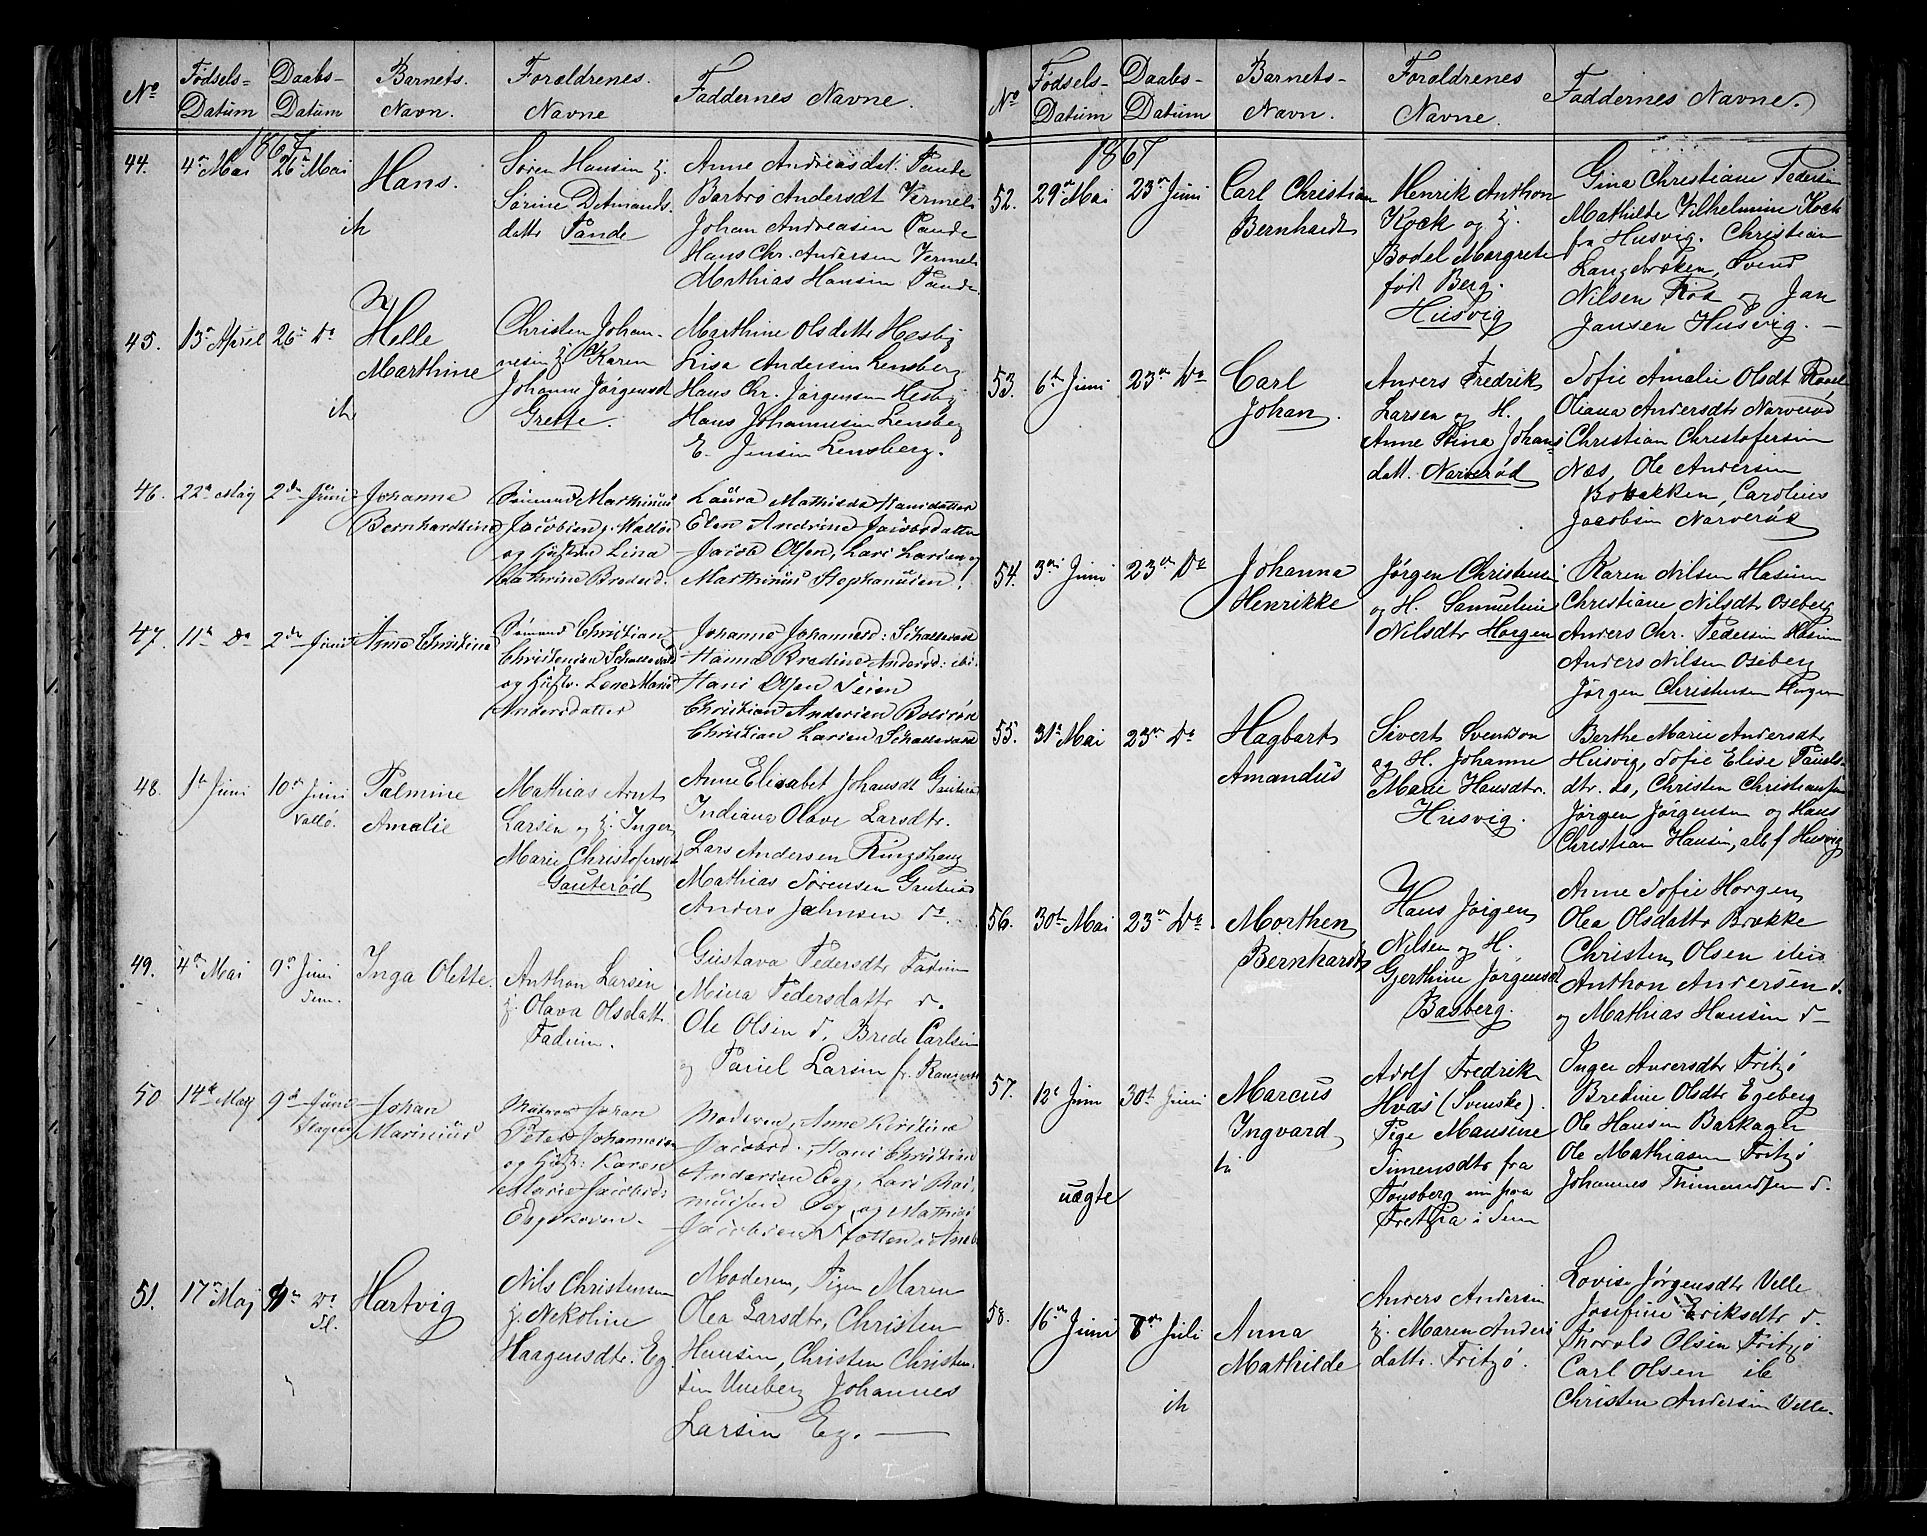 No
Fødsels-
Datum
Daabs-
Datum
Barnets.
Navn.
Foraldrenes.
Navne
Faddernes Navne.
1867
44.
4de Mai
26de Mai
Hans.
ik
Søren Hansen
Sørine Detmands
dattr Tande
Anne Andreasdat: Tande
Barbro Andersdt Vermeli
Johan Andreasen Tande
Hans Chr. Andersen Vermeli
Mathias Hansen Tande
45.
13de April
26de Do
Helle
Marthine
ik
Christen Johan-
nesen Karen
Johanne Jørgensd
Grette.
Marthine Olsdattr Hesby
Lisa Andersen Lensberg
Hans Chr. Jørgensen Hesby
Hans Johannesen Lensberg
E. Jensen Lensberg.
46.
22de May
2den Juni
Johanne
Bernhardtine
Sømand Marthinus
Jacobsen Valløe
og Hustru Lina
Cathrine Bredesd.
Laura Mathilda Hansdatter
Elen Andrine Jacobsdatter
Jacob Olsen, Lars Larsen og
Marthinus Stephansen!
47.
11te Do
2den Juni
Anne Christine
Sømand Christian
Christensen
og Hustr. Lene Marie
Andersdatter
Johanne Johannesd:
Hanna Bredine Andersd: ibi.
Hans Olsen Seien
Christian Andersen
Christian Larsen
48.
1te Juni
10de Juni
Vallø.
Palmine
Amalie
Mathias Arnt
Larsen og Inger
Marie Christofersd
Gauterød
Anne Elisabet Johansdt Gauterø
Indiana Olave Larsdtr.
Lars Andersen Ringshaug
Mathias Sørensen Gauterød
Anders Jahnsen do
49.
4de Mai
9de Juni
Sem.
Inga Olette.
Anthon Larsen
Olava Olsdatt
Fadum.
Gustava Pedersdtr Fadum
Mina Pedersdattr d.
Ole Olsen d. Brede Carlsen
og Paul Larsen fr.
50
14de May
9de Juni
Slagen
Johan
Marinius
Matros Johan
Peter Johannesen
og Hustr: Karen
Marie Jacobsd:
Eegskoven.
Moderen, Anne Kirstine
Jacobsd., Hans Christian
Andersen Eeg, Lars Ras-
mussen Eeg, og Mathias
Jacobsen
51.
17de Maj
9de Do
Sl.
Hartvig
Nils Christensen
Nekoline
Haagensdtr. Eg.
Moderen, Pigen Maren
Olea Larsdtr, Christen
Hansen, Christen Christen-
sen Unneberg Johannes
Larsen Eg.
No
Fødsels-
Datum
Daabs-
Datum
Barnets-
Navn.
Foraldrenes
Navne.
Faddernes Navne.
1867
52.
29de Mai
23de Juni
Carl Christian
Bernhardt
Henrik Anthon
Kock og
Bodel Margrete
født Berg.
Husvig
Gina Christiane Pedersen
Mathilde Vilhelmine Kock
fra Husvig. Christian
Langebrekken, Svend
Nilsen Røs og Jan
Jansen Husvig.
53.
6te Juni
23de Do
Carl
Johan.
Anders Fredrik
Larsen og H.
Anne Stina Johans
datt. Narverød
Sofie Amalie Olsdt
Oliana Andersdtr Narverød
Christian Christofersen
Næs, Ole Andersen
Bobakken, Carolius
Jacobsen Narverød
54.
3die Juni
23de Do
Johanna
Henrikke
Jørgen Christensen
og H. Samueline
Nilsdtr Horgen
Karen Nilsen Hasum
Christiane Nilsdtr Oseberg
Anders Chr. Pedersen Hasum
Anders Nilsen Oseberg
Jørgen Christensen Horgen
55.
31te Mai
23de Do
Hagbart
Amandus
Sivert Svendson
og H. Johanne
Marie Hansdtr.
Husvig.
Berthe Marie Andersdt
Husvig, Sofie Elise Pauls-
dtr. do, Christen Christiansen
Jørgen Jørgensen og Hans
Christian Hansen, alle f Husvig
56.
30te Mai
23de Do
Morthen
Bernhardt
Hans Jørgen
Nilsen og H.
Gjerthine Jørgensd
Basberg.
Anne Sofie Horgen
Olea Olsdattr Brække
Christen Olsen ibid
Anthon Andersen d.
og Mathias Hansen d
57.
12te Juni
30te Juni
Marcus
Ingvard
uægte
Adolf Fredrik
Hvas (Svenske).
Pige Mansine
Simensdtr fra
Tønsberg nu paa
i Sem
Inger Andersdtr Fritzø
Bredine Olsdtr Egeberg
Ole Hansen Barkager
Ole Mathiasen Fritzø
Johannes Thimandsen d.
58.
16de Juni
7de Juli
Anna
Mathilde
ik
Anders Andersen
Maren Anders
dattr. Fritzø.
Lovise Jørgensdtr Velle
Josefine Eriksdtr d.
Thorvald Olsen Fritzø
Carl Olsen ib
Christen Andersen Velle.